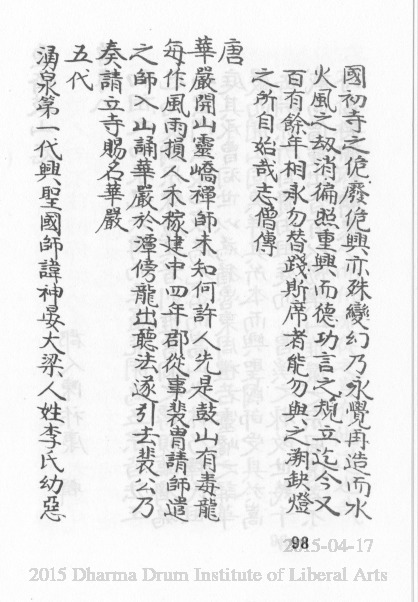 國初寺之俛廢俛興亦殊變幻乃永覺再造而水
火風之劫消徧照重興而德功言之規立迄今又
百有餘年相承勿替踐斯席者能勿與之溯鈌燈
之所自始哉志僧傳
唐
華嚴開山靈嶠禪師未知何許人先是鼓山有毒龍
每作風雨損人禾稼建中四年郡從事裴冑請師遣
之師入山誦華嚴於潭傍龍出聽法遂引去裴公乃
奏請立寺賜名華嚴
五代
湧泉第一代興聖國師諱神晏大梁人姓李氏幼惡
98
2015-04-17
2015 Dharma Drum Institute of Liberal Arts